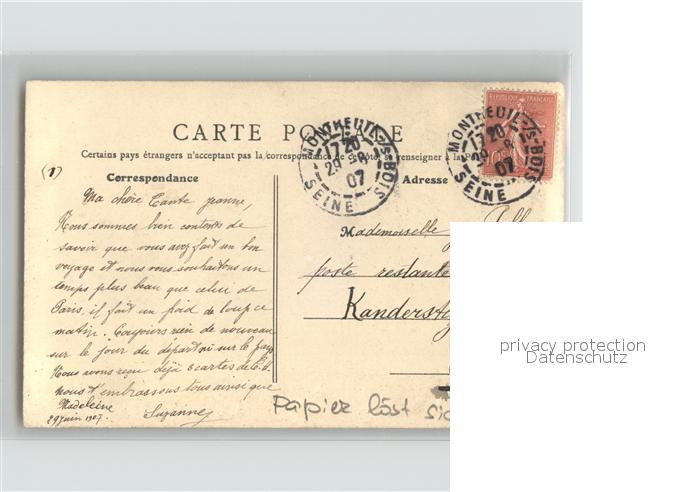 CARTE POSTALE
Certains pays étrangers n'acceptant pas la correspondance de ce côté, se renseigner à la
Correspondance
Adresse
(1)
MONTREUIL-S-BOIS
17 20
29 -6
07
SEINE
MONTREUIL-S-BOIS
17 20
29 -6
07
SEINE
REPUBLIQUE FRANÇAISE
Ma chère Tante Jeanne,
Nous sommes bien contents de
savoir que vous avez fait un bon
voyage et nous vous souhaitons un
temps plus beau que celui de
Paris, il fait un froid de loup ce
matin. Toujours rien de nouveau
sur le jour du départ ni sur le pays
Nous avons reçu déjà 3 cartes de
nous t'embrassons tous ainsi que
Madeleine
Suzanne
29 juin 1907.
Mademoiselle
poste restante
Kanderste
Papier löst sic
privacy protection
Datenschutz